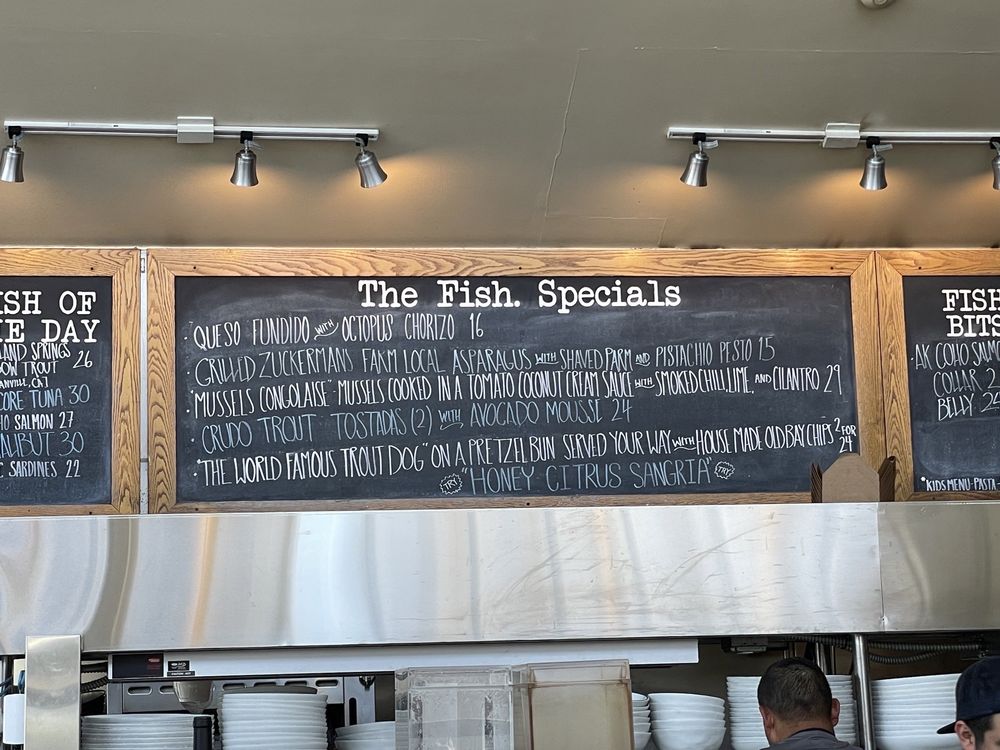 ISH OF
E DAY
LAND SPRINGS
OW TROUT 26
ANVILLE, CA]
CORE TUNA 30
HO SALMON 27
ALIBUT 30
C SARDINES 22
The Fish. Specials
QUESO FUNDIDO WITH OCTOPUS CHORIZO 16
GRILLED ZUCKERMANS FARM LOCAL ASPARAGUS WITH SHAVED PARM AND PISTACHIO PESTO 15
"MUSSELS CONGOLAISE" - MUSSELS COOKED IN A TOMATO COCONUT CREAM SAUCE WITH SMOKED CHILI, LIME, AND CILANTRO 29
CRUDO TROUT TOSTADAS (2) WITH AVOCADO MOUSSE 24
"THE WORLD FAMOUS TROUT DOG" ON A PRETZEL BUN SERVED YOUR WAY WITH HOUSE MADE OLD BAY CHIPS 2 FOR 24
TRY "HONEY CITRUS SANGRIA" TRY
FISH
BITS
AK COHO SALMO
COLLAR 2
BELLY 2
*KIDS MENU-PASTA-